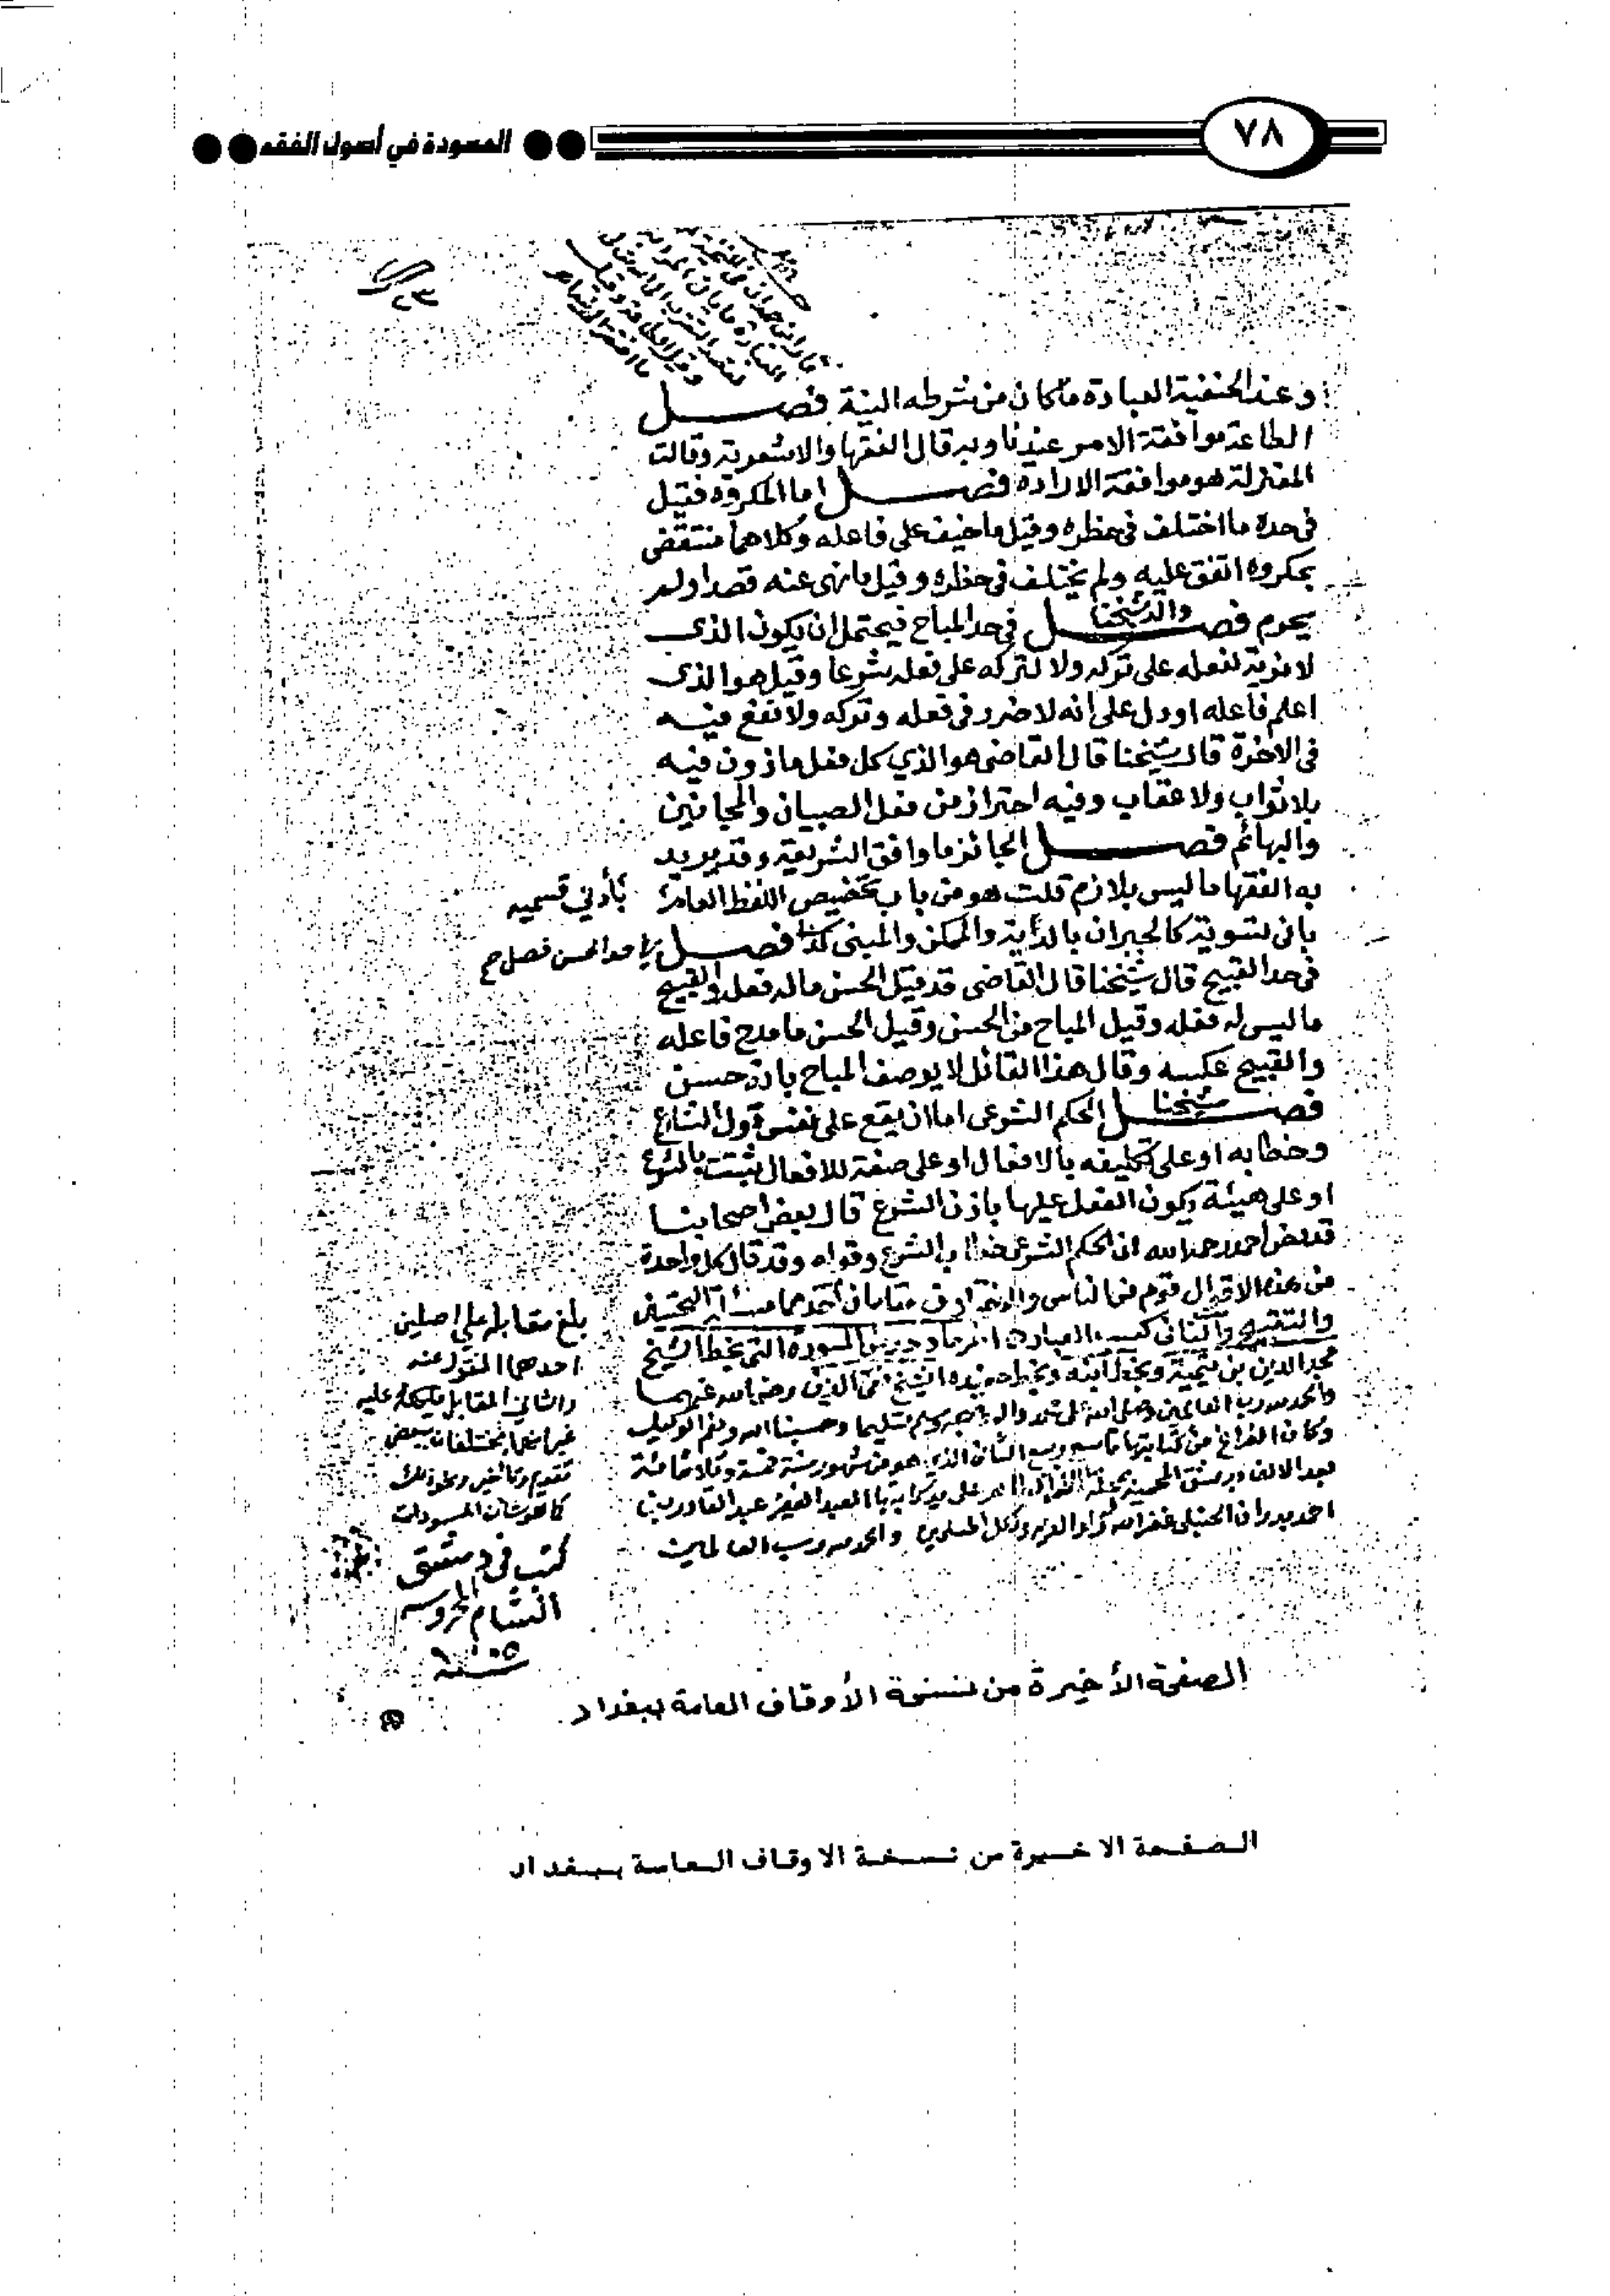 ٧٨
المسودة في أصول الفقه
وعند الحنفية العبادة ما كان من شرطه النية فصل
الطاعة موافقة الامر عندنا وبه قال الفقها والاشعرية وقالت
المعتزلة هو موافقة الارادة فصل اما المكروه فقيل
فى حده ما اختلف فى حظره وقيل ما خيف على فاعله وكلاهما منتقض
بمكروه اتفق عليه ولم يختلف فى حظره وقيل ما نهى عنه قصدا ولم
يحرم فصل والد شيخنا فى حد المباح فيحتمل ان يكون الذى
لا مزية لفعله على تركه ولا لتركه على فعله شرعا وقيل هو الذى
اعلم فاعله او دل على انه لا ضرر فى فعله وتركه ولا نفع فيه
فى الاخرة قال شيخنا قال القاضى هو الذي كل فعل ماذون فيه
بلا ثواب ولا عقاب وفيه احتراز من فعل الصبيان والمجانين
والبهائم فصل الجائز ما وافق الشريعة وقد يريد
به الفقها ما ليس بلازم قلت هو من باب تخصيص اللفظ العام
بأدنى قسميه
فصل
فى حد القبيح قال شيخنا قال القاضى قد قيل الحسن ماله فعله والقبيح
ما ليس له فعله وقيل المباح من الحسن وقيل الحسن ما مدح فاعله
والقبيح عكسه وقال هذا القائل لا يوصف المباح بانه حسن
فصل شيخنا الحكم الشرعى اما ان يقع على نفس قول الشارع
وخطابه او على تكليفه بالافعال او على صفة للافعال يثبت بالشرع
او على هيئة يكون الفعل عليها باذن الشرع قال بعض اصحابنا
قد نص احمد رحمه الله ان الحكم الشرعى خطاب الشرع وقوله وقد قال كل واحدة
من هذه الاقوال قوم من الناس
مجد الدين بن تيمية وبخط ابنه وبخط حفيده الشيخ تقى الدين رضى الله عنهما
والحمد لله رب العالمين وصلى الله على محمد واله وصحبه وسلم تسليما وحسبنا الله ونعم الوكيل
وكان الفراغ من كتابتها تاسع ربيع الثانى الذي هو من شهور سنة خمسة وثلاثمائة
بعد الالف بدمشق المحمية
العبد الفقير عبد القادر بن
احمد بدران الحنبلى غفر الله له ولوالديه ولكل المسلمين والحمد لله رب العالمين
بلغ مقابلة على اصلين
احدهما المنقول عنه
والثانى المقابل
غير انهما مختلفان ببعض
تقديم وتأخير ونحو ذلك
كما هو شأن المسودات
كتب فى دمشق
الشام المحروسة
الصفحة الأخيرة من نسخة الأوقاف العامة ببغداد
الصفحة الاخيرة من نسخة الاوقاف العامة ببغداد